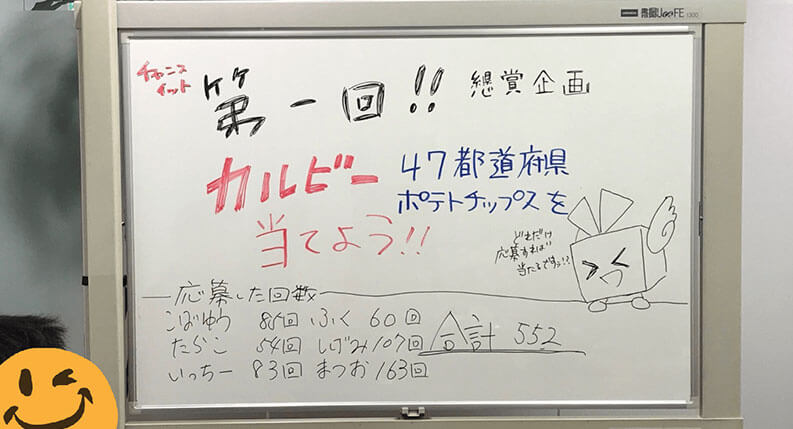 チャンス
イット
第一回!! 懸賞企画
カルビー 47都道府県
ポテトチップスを
当てよう!!
どれだけ
応募すれば
当たるですぅ!?
応募した回数
こばゆう 85回 ふく 60回
たらこ 54回 しげみ 107回 合計 552
いっちー 83回 まつお 163回